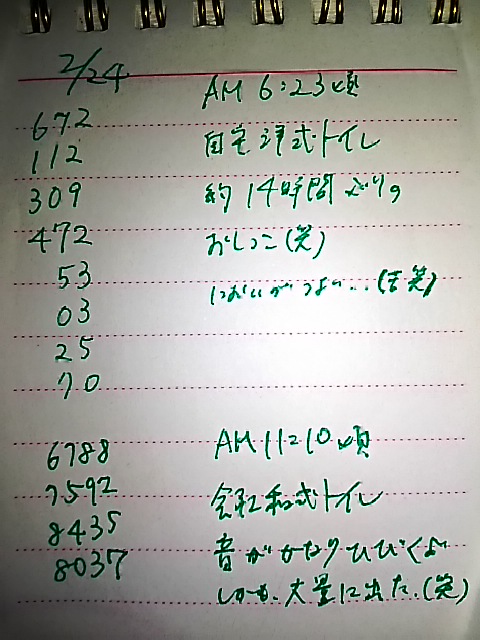 2/24
672
112
309
472
53
03
25
70
AM 6:23頃
自宅洋式トイレ
約14時間ぶりの
おしっこ(笑)
においがつよい...(苦笑)
6788
7592
8435
8037
AM11:10頃
会社和式トイレ
音がかなりひびくよ
しかも、大量に出た.(笑)